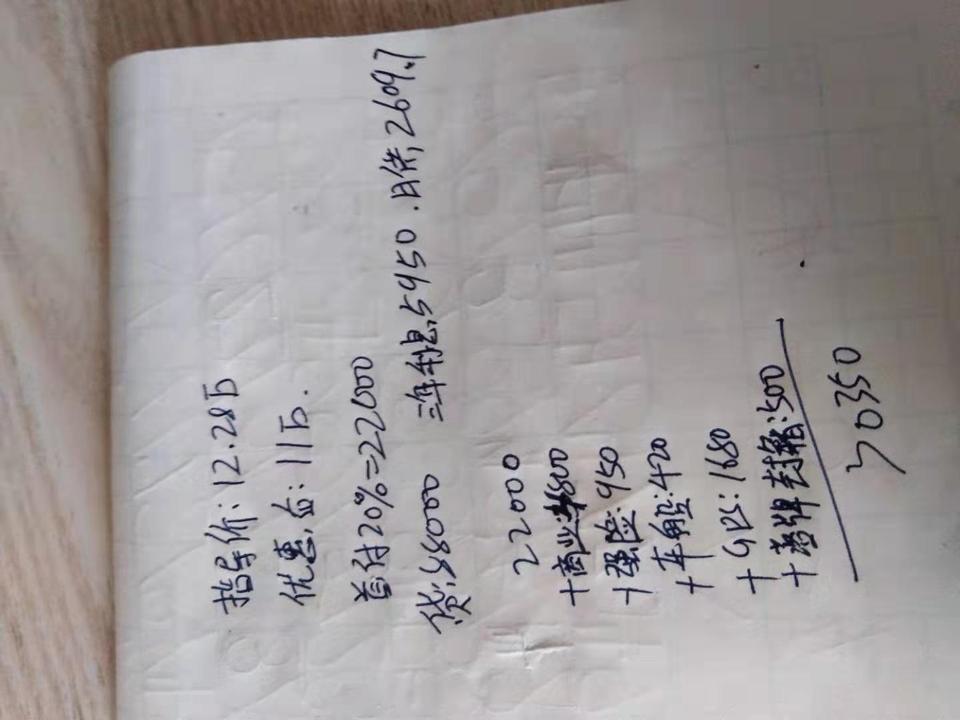 指导价:12.28万
优惠后:11万.
首付20%=22000
贷:88000 三年利息,5950.月供,2609.7
22000
+商业:4800
+强险:950
+车船:420
+GPS:1680
+落牌 封档:500
30350